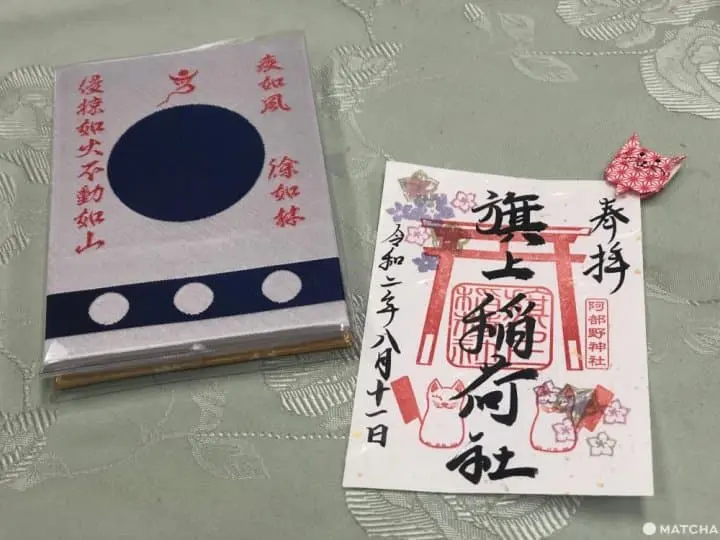 疾如風
徐如林
侵掠如火不動如山
奉拝
旗上稲荷社
阿部野神社
令和二年八月十一日
MATCHA